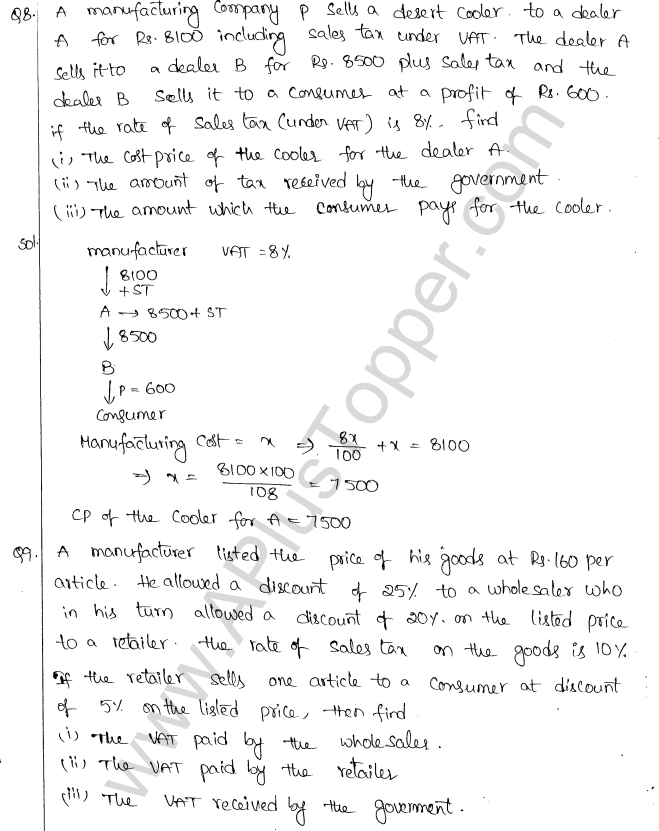 Q8. A manufacturing Company P Sells a desert Cooler. to a dealer
A for Rs. 8100 including sales tax under VAT. The dealer A
sells it to a dealer B for Rs. 8500 plus sales tax and the
dealer B Sells it to a Consumer at a profit of Rs. 600.
if the rate of Sales tax (under VAT) is 8%. find
(i) The cost price of the cooler for the dealer A.
(ii) The amount of tax received by the government.
(iii) The amount which the Consumer pays for the cooler.
Sol. manufacturer VAT = 8%
↓ 8100
+ ST
A → 8500 + ST
↓ 8500
B
↓ P = 600
Consumer
Manufacturing Cost = x ⇒ 8x/100 + x = 8100
⇒ x = 8100×100/108 = 7500
CP of the Cooler for A = 7500
Q9. A manufacturer listed the price of his goods at Rs. 160 per
article. He allowed a discount of 25% to a wholesaler who
in his turn allowed a discount of 20%. on the listed price
to a retailer. the rate of sales tax on the goods is 10%.
If the retailer sells one article to a consumer at discount
of 5% on the listed price, then find
(i) The VAT paid by the wholesaler.
(ii) The VAT paid by the retailer
(iii) The VAT received by the goverment.
www.APlusTopper.com